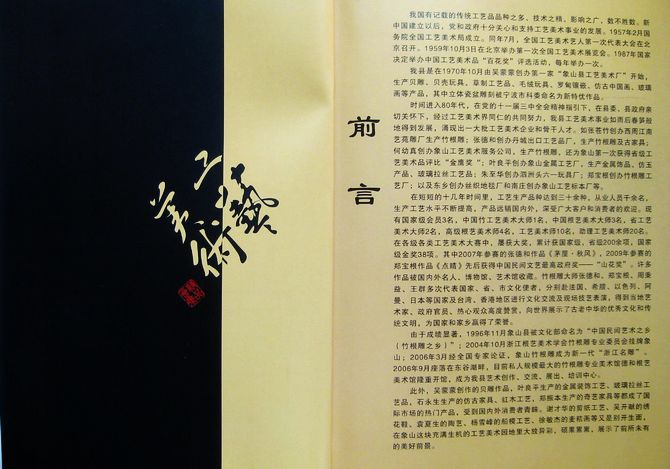 工艺
美术
前言
我国有记载的传统工艺品品种之多、技术之精、影响之广，数不胜数。新
中国建立以后，党和政府十分关心和支持工艺美术事业的发展。1957年2月国
务院全国工艺美术局成立。同年7月，全国工艺美术艺人第一次代表大会在北
京召开。1959年10月3日在北京举办第一次全国工艺美术展览会。1987年国家
决定举办中国工艺美术品“百花奖”评选活动，每年举办一次。
我县是在1970年10月由吴蒙蒙创办第一家“象山县工艺美术厂”开始，
生产贝雕、贝壳玩具、草制工艺品、毛绒玩具、罗甸镶嵌、仿古中国画、玻璃
画等产品，其中立体瓷盆雕刻被宁波市科委命名为新特优作品。
时间进入80年代，在党的十一届三中全会精神指引下，在县委、县政府亲
切关怀下，经过工艺美术界同仁的共同努力，我县工艺美术事业如雨后春笋般
地得到发展，涌现出一大批工艺美术企业和骨干人才。如张苍竹创办西周江南
艺苑雕厂生产竹根雕；张德和创办丹城出口工艺品厂，生产竹根雕及古家具；
何幼真创办象山工艺美术服务公司，生产竹根雕，还为象山第一次获得省级工
艺美术品评比“金鹰奖”；叶良平创办象山金属工艺厂，生产金属饰品、仿玉
产品、玻璃拉丝工艺品；朱至华创办泗洲头六一玩具厂；郑宝根创办竹根雕工
艺厂；以及东乡创办丝织地毯厂和南庄创办象山工艺标本厂等。
在短短的十几年时间里，工艺生产品种达到三十余种，从业人员千余名，
生产工艺水平不断提高，产品远销国内外，深受广大客户和消费者的欢迎。现
有国家级会员3名，中国竹工艺美术大师1名，中国根艺美术大师3名，省工艺
美术大师2名，高级根艺美术师4名，工艺美术师10名，助理工艺美术师20名。
在各级各类工艺美术大赛中，屡获大奖，累计获国家级，省级200余项，国
家级金奖38项。其中2007年参赛的张德和作品《茅屋·秋风》，2009年参赛的
郑宝根作品《点睛》先后获得中国民间文艺最高政府奖——“山花奖”。许多
作品被国内外名人、博物馆、艺术馆收藏。竹根雕大师张德和、郑宝根、周秉益、
王群多次代表国家、省、市文化使者，分别赴法国、希腊、以色列、阿
曼、日本等国家及台湾、香港地区进行文化交流及现场技艺表演，得到当地艺
术家、政府官员、热心观众高度赞赏，向世界展示了古老中华的优秀文化和传
统文明，为国家和家乡赢得了荣誉。
由于成绩显著，1996年11月象山县被文化部命名为“中国民间艺术之乡
（竹根雕之乡）”；2004年10月浙江根艺美术学会竹根雕专业委员会挂牌象
山；2006年3月经全国专家论证，象山竹根雕成为新一代“浙江名雕”。
2006年9月座落在东谷湖畔，目前私人规模最大的竹根雕专业美术馆德和根艺
美术馆隆重开馆，成为我县艺术创作、交流、展出、培训中心。
此外，吴蒙蒙创作的贝雕作品，叶良平生产的金属装饰工艺、玻璃拉丝工
艺品，石永生生产的仿古家具、红木工艺，郑振本生产的奇艺家具等都成了国
际市场的热门产品，受到国内外消费者青睐。谢才华的剪纸工艺、吴开献的绣
花鞋、袁夏生的陶艺、杨雪峰的船模工艺、徐敏杰的麦秸画等又是别开生面，
在象山这块充满生机的工艺美术园地里大放异彩，硕果累累，展示了前所未有
的美好前景。